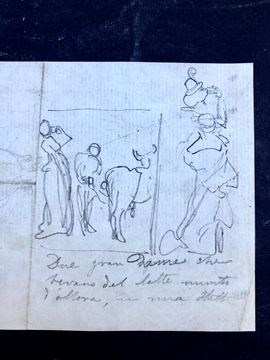 Due gran Dame che
bevano del latte munto
d'allora, in una Stalla